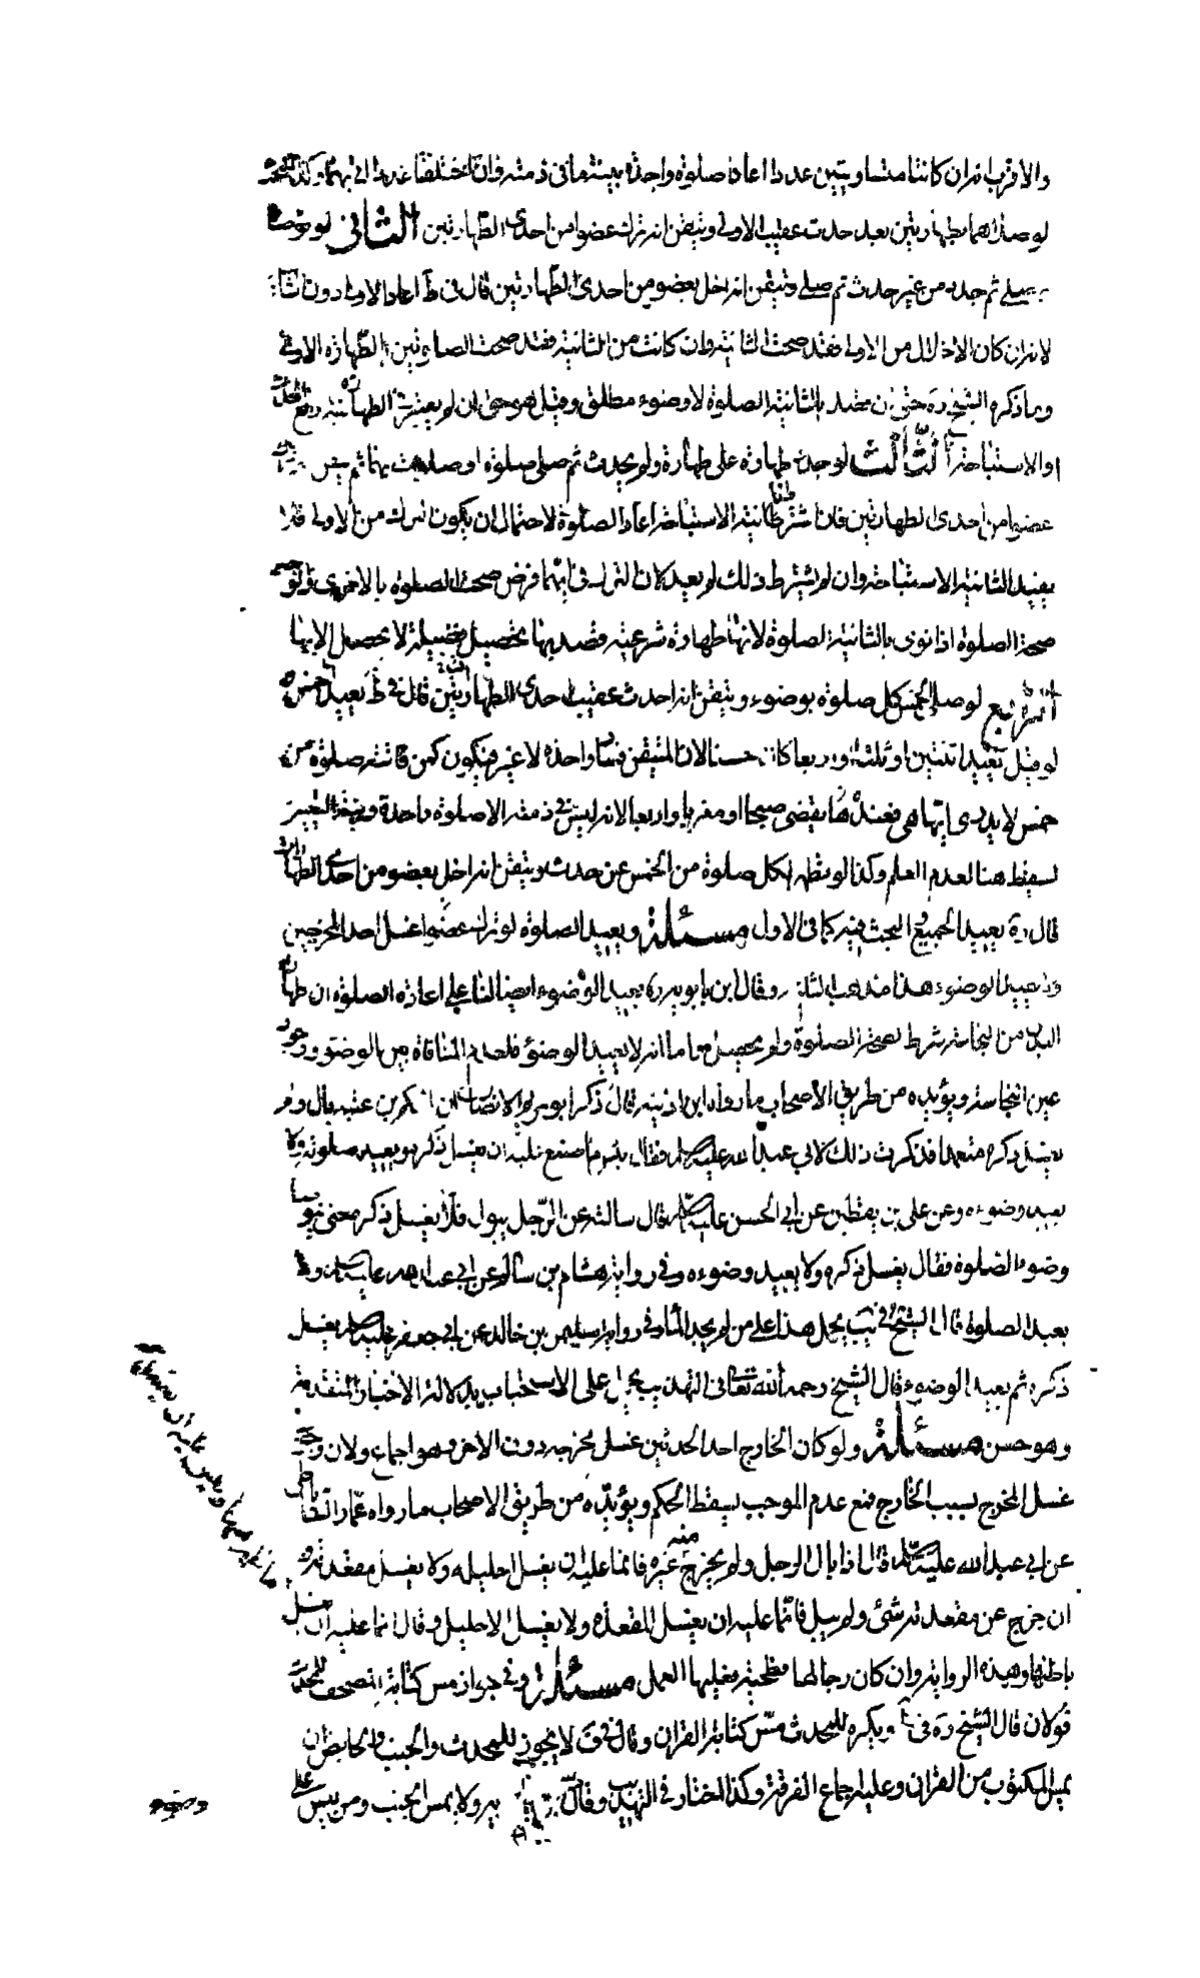 والاقرب انه ان كانتا متساويتين عددا اعاد صلوة واحدة بنية ما فى ذمته وان اختلفتا
لو صلاهما بطهارتين بعد حدث عقيب الاولى وتيقن انه ترك عضوا من احدى الطهارتين الثانى لو توضأ
وصلى ثم جدد من غير حدث ثم صلى وتيقن انه اخل بعضو من احدى الطهارتين قال فى ط اعاد الاولى دون الثانية
لانه ان كان الاخلال من الاولى فقد صحت الثانية وان كانت من الثانية فقد صحت الصلوتين بالطهارة الاولى
وما ذكره الشيخ ره حق ان قصد بالثانية الصلوة لا وضوء مطلق وقيل هو حق ان لم يعتبر فى الطهارة نية رفع الحدث
او الاستباحة الثالث لو جدد طهارة على طهارة ولم يحدث ثم صلى صلوة او صلوات بهما ثم تيقن ترك
عضو من احدى الطهارتين فان اشترطنا نية الاستباحة اعاد الصلوة لاحتمال ان يكون الترك من الاولى فلا
يفيد الثانية الاستباحة وان لم نشترط ذلك لم يعد كان الترك فى ايتهما فرض صحت الصلوة بالاخرى والوجه
صحة الصلوة اذا نوى بالثانية الصلوة لانها طهارة شرعية قصد بها تحصيل فضيلة لا يحصل الا بها
الرابع لو صلى الخمس كل صلوة بوضوء وتيقن انه احدث عقيب احدى الطهارتين قال فى ط يعيد الخمس
لو قيل يعيد اثنتين وثلثا واربعا كان حسنا لان المتيقن فساد واحدة لا غير فيكون كمن فاتته صلوة من
خمس لا يدرى ايتها هى فعندها يقضى صبحا ومغربا واربعا لانه ليس فى ذمته الا صلوة واحدة ونية التعيين
يسقط هنا لعدم العلم وكذا لو تطهر لكل صلوة من الخمس عن حدث وتيقن انه اخل بعضو من احدى الطهارات
قال ره يعيد الجميع والبحث فيه كما فى الاول مسئلة ويعيد الصلوة لو ترك عمدا غسل احد المخرجين
ولا يعيد الوضوء هذا مذهب الثلثة وقال ابن بابويه ره يعيد الوضوء ايضا لنا على اعادة الصلوة ان طهارة
البدن من النجاسة شرط لصحة الصلوة ولم يحصل واما انه لا يعيد الوضوء فلعدم المنافاة بين الوضوء ووجود
عين النجاسة ويؤيده من طريق الاصحاب ما رواه ابن اذينة قال ذكر ابو مريم الانصارى ان الحكم بن عتيبة بال ولم
يغسل ذكره متعمدا فذكرت ذلك لابى عبد الله عليه السلام فقال بئس ما صنع عليه ان يغسل ذكره ويعيد صلوته ولا
يعيد وضوءه وعن على بن يقطين عن ابى الحسن عليه السلام قال سالته عن الرجل يبول فلا يغسل ذكره حتى يتوضأ
وضوء الصلوة فقال يغسل ذكره ولا يعيد وضوءه وفى رواية هشام بن سالم عن ابى عبد الله عليه السلام ولا
يعيد الصلوة قال الشيخ فى يب يحمل هذا على من لم يجد الماء وفى رواية سليمان بن خالد عن ابى جعفر عليه السلام يغسل
ذكره ثم يعيد الوضوء قال الشيخ رحمه الله تعالى فى التهذيب يحمل على الاستحباب بدلالة الاخبار المتقدمة
وهو حسن مسئلة ولو كان الخارج احد الحدثين غسل مخرجه دون الاخر وهو اجماع ولان وجوب
غسل المخرج بسبب الخارج فمع عدم الموجب يسقط الحكم ويؤيده من طريق الاصحاب ما رواه عمار الساباطى
عن ابى عبد الله عليه السلام قال اذا بال الرجل ولم يخرج منه غيره فانما عليه ان يغسل احليله ولا يغسل مقعدته
ان خرج عن مقعدته شئ ولم يبل فانما عليه ان يغسل المقعدة ولا يغسل الاحليل وقال انما عليه ان يغسل
باطنها وهذه الرواية وان كان رجالها فطحية فعليها العمل مسئلة وفى جواز مس كتابة المصحف للمحدث
قولان قال الشيخ ره فى ويكره للمحدث مس كتابة القران وقال فى ف لا يجوز للمحدث والجنب والحائض ان
يمس المكتوب من القران وعليه اجماع الفرقة وكذا اختار فى التهذيب وقال ولا يمس الجنب ومن ليس على
وضوء